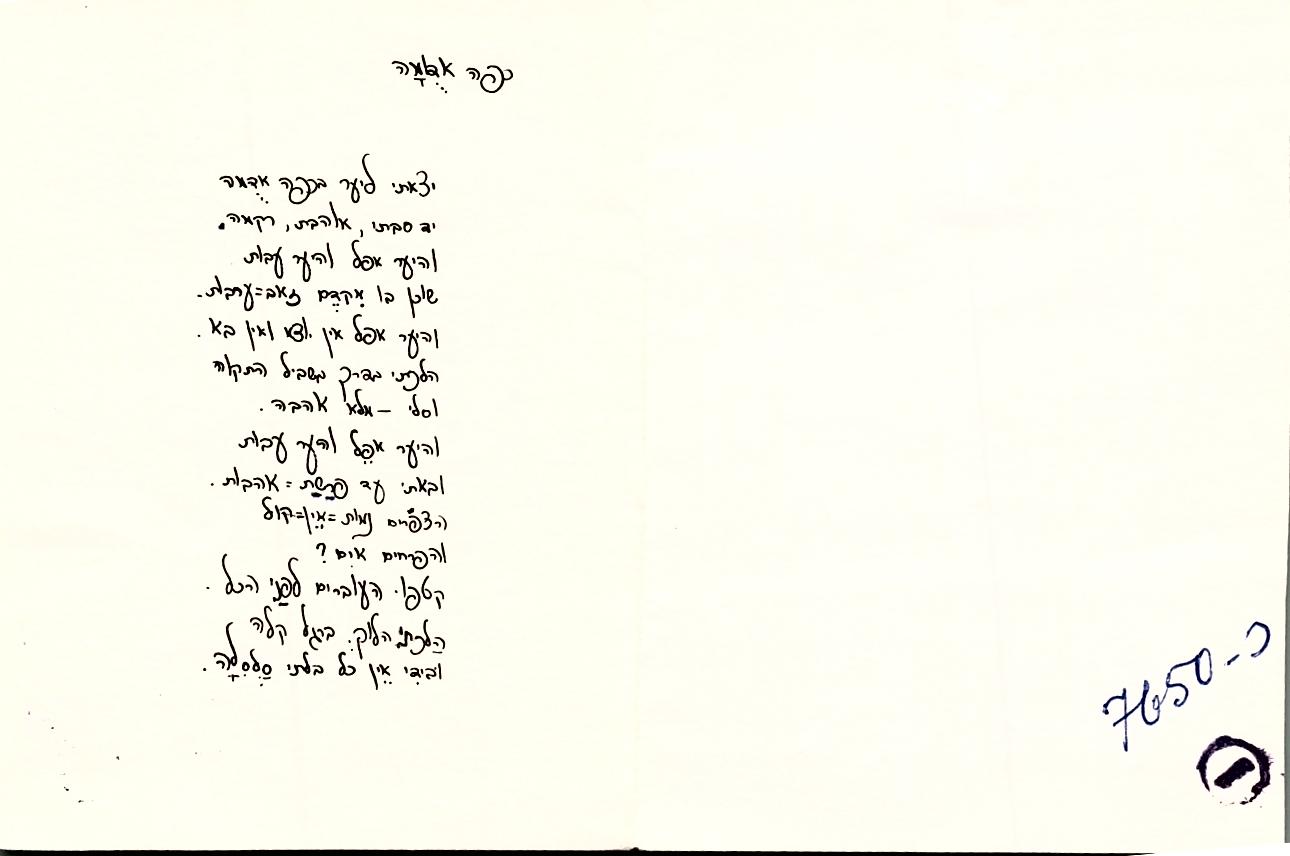 כפה אֲדֻמָּה
יצאתי ליער בכפה אֲדֻמה
יד סבתי, אוהבת, רקמה.
והיער אפל והיער עבות
שוכן בו מִקֶּדֶם זאב=ערבות.
והיער אפל אין יוצא ואין בא.
הלכתי בפרך בשביל התקוה
וסלי – מלא אהבה.
והיער אפֵל והיער עבות
ובאתי עד פָּרָשַׁת=אהבות.
הצפֳּרים נמות=אֵין=קול
והפרחים אים?
קטפו העוברים לִפְנֵי הכל.
הָלכתי הלוֹך ברגל קלה
ובידי אֵין כל בלתי סַלְסִלָּה.
כ-7650